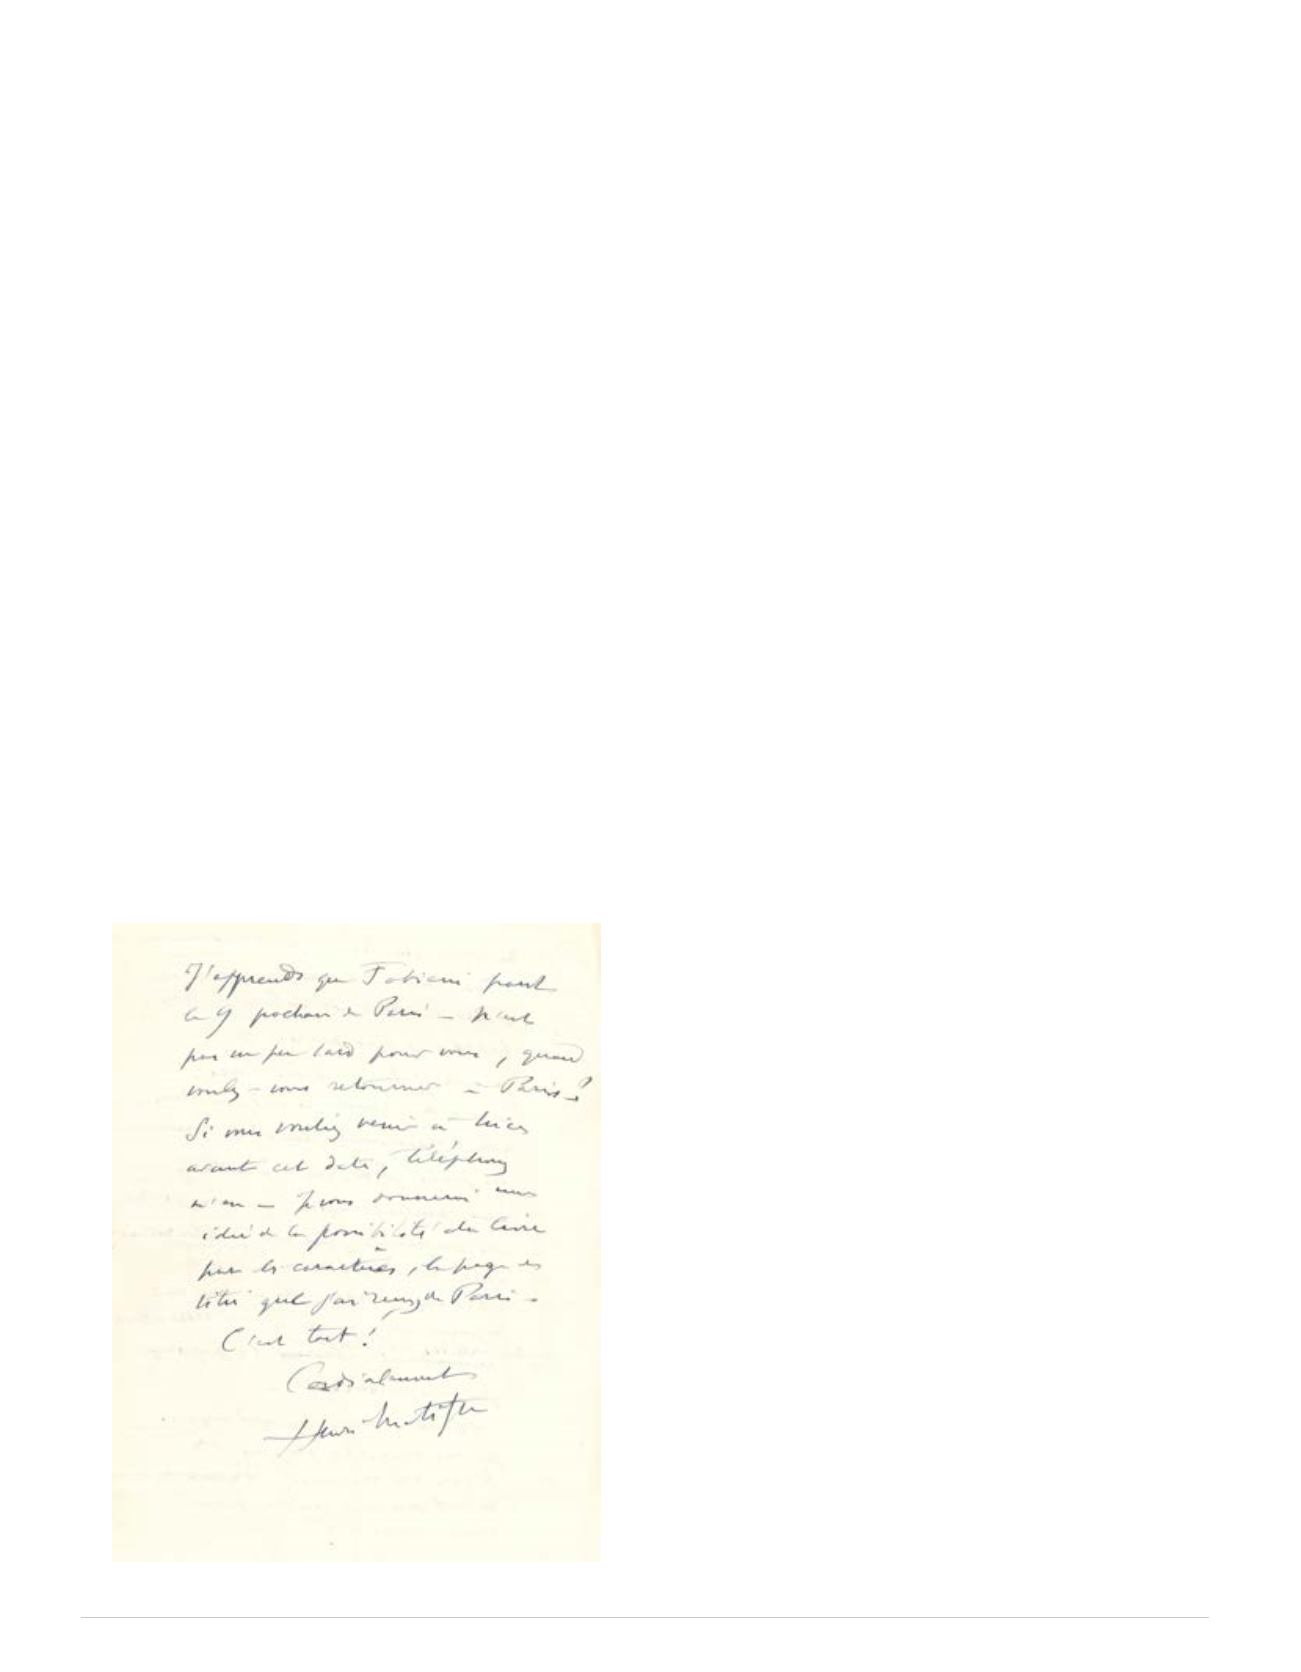 J'apprends que Fabiani part
le 9 prochain de Paris – n'est
pas un peu tard pour vous, quand
voulez-vous retourner à Paris?
Si vous vouliez venir à Nice
avant cet date, téléphonez
m'en – Je vous donnerai une
idée de la possibilité du livre
par les caractères, la page de
titre que j'ai reçus de Paris –
C'est tout!
Cordialement
Henri Matisse